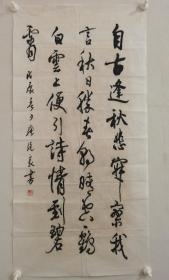 自古逢秋悲寂寥我
言秋日勝春朝晴空一鶴
白雲上便引詩情到碧
霄 辰書